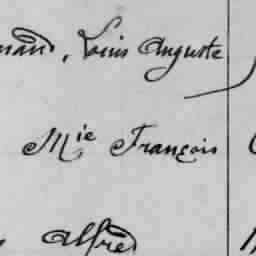 Louis Auguste
Mie François
Alfred